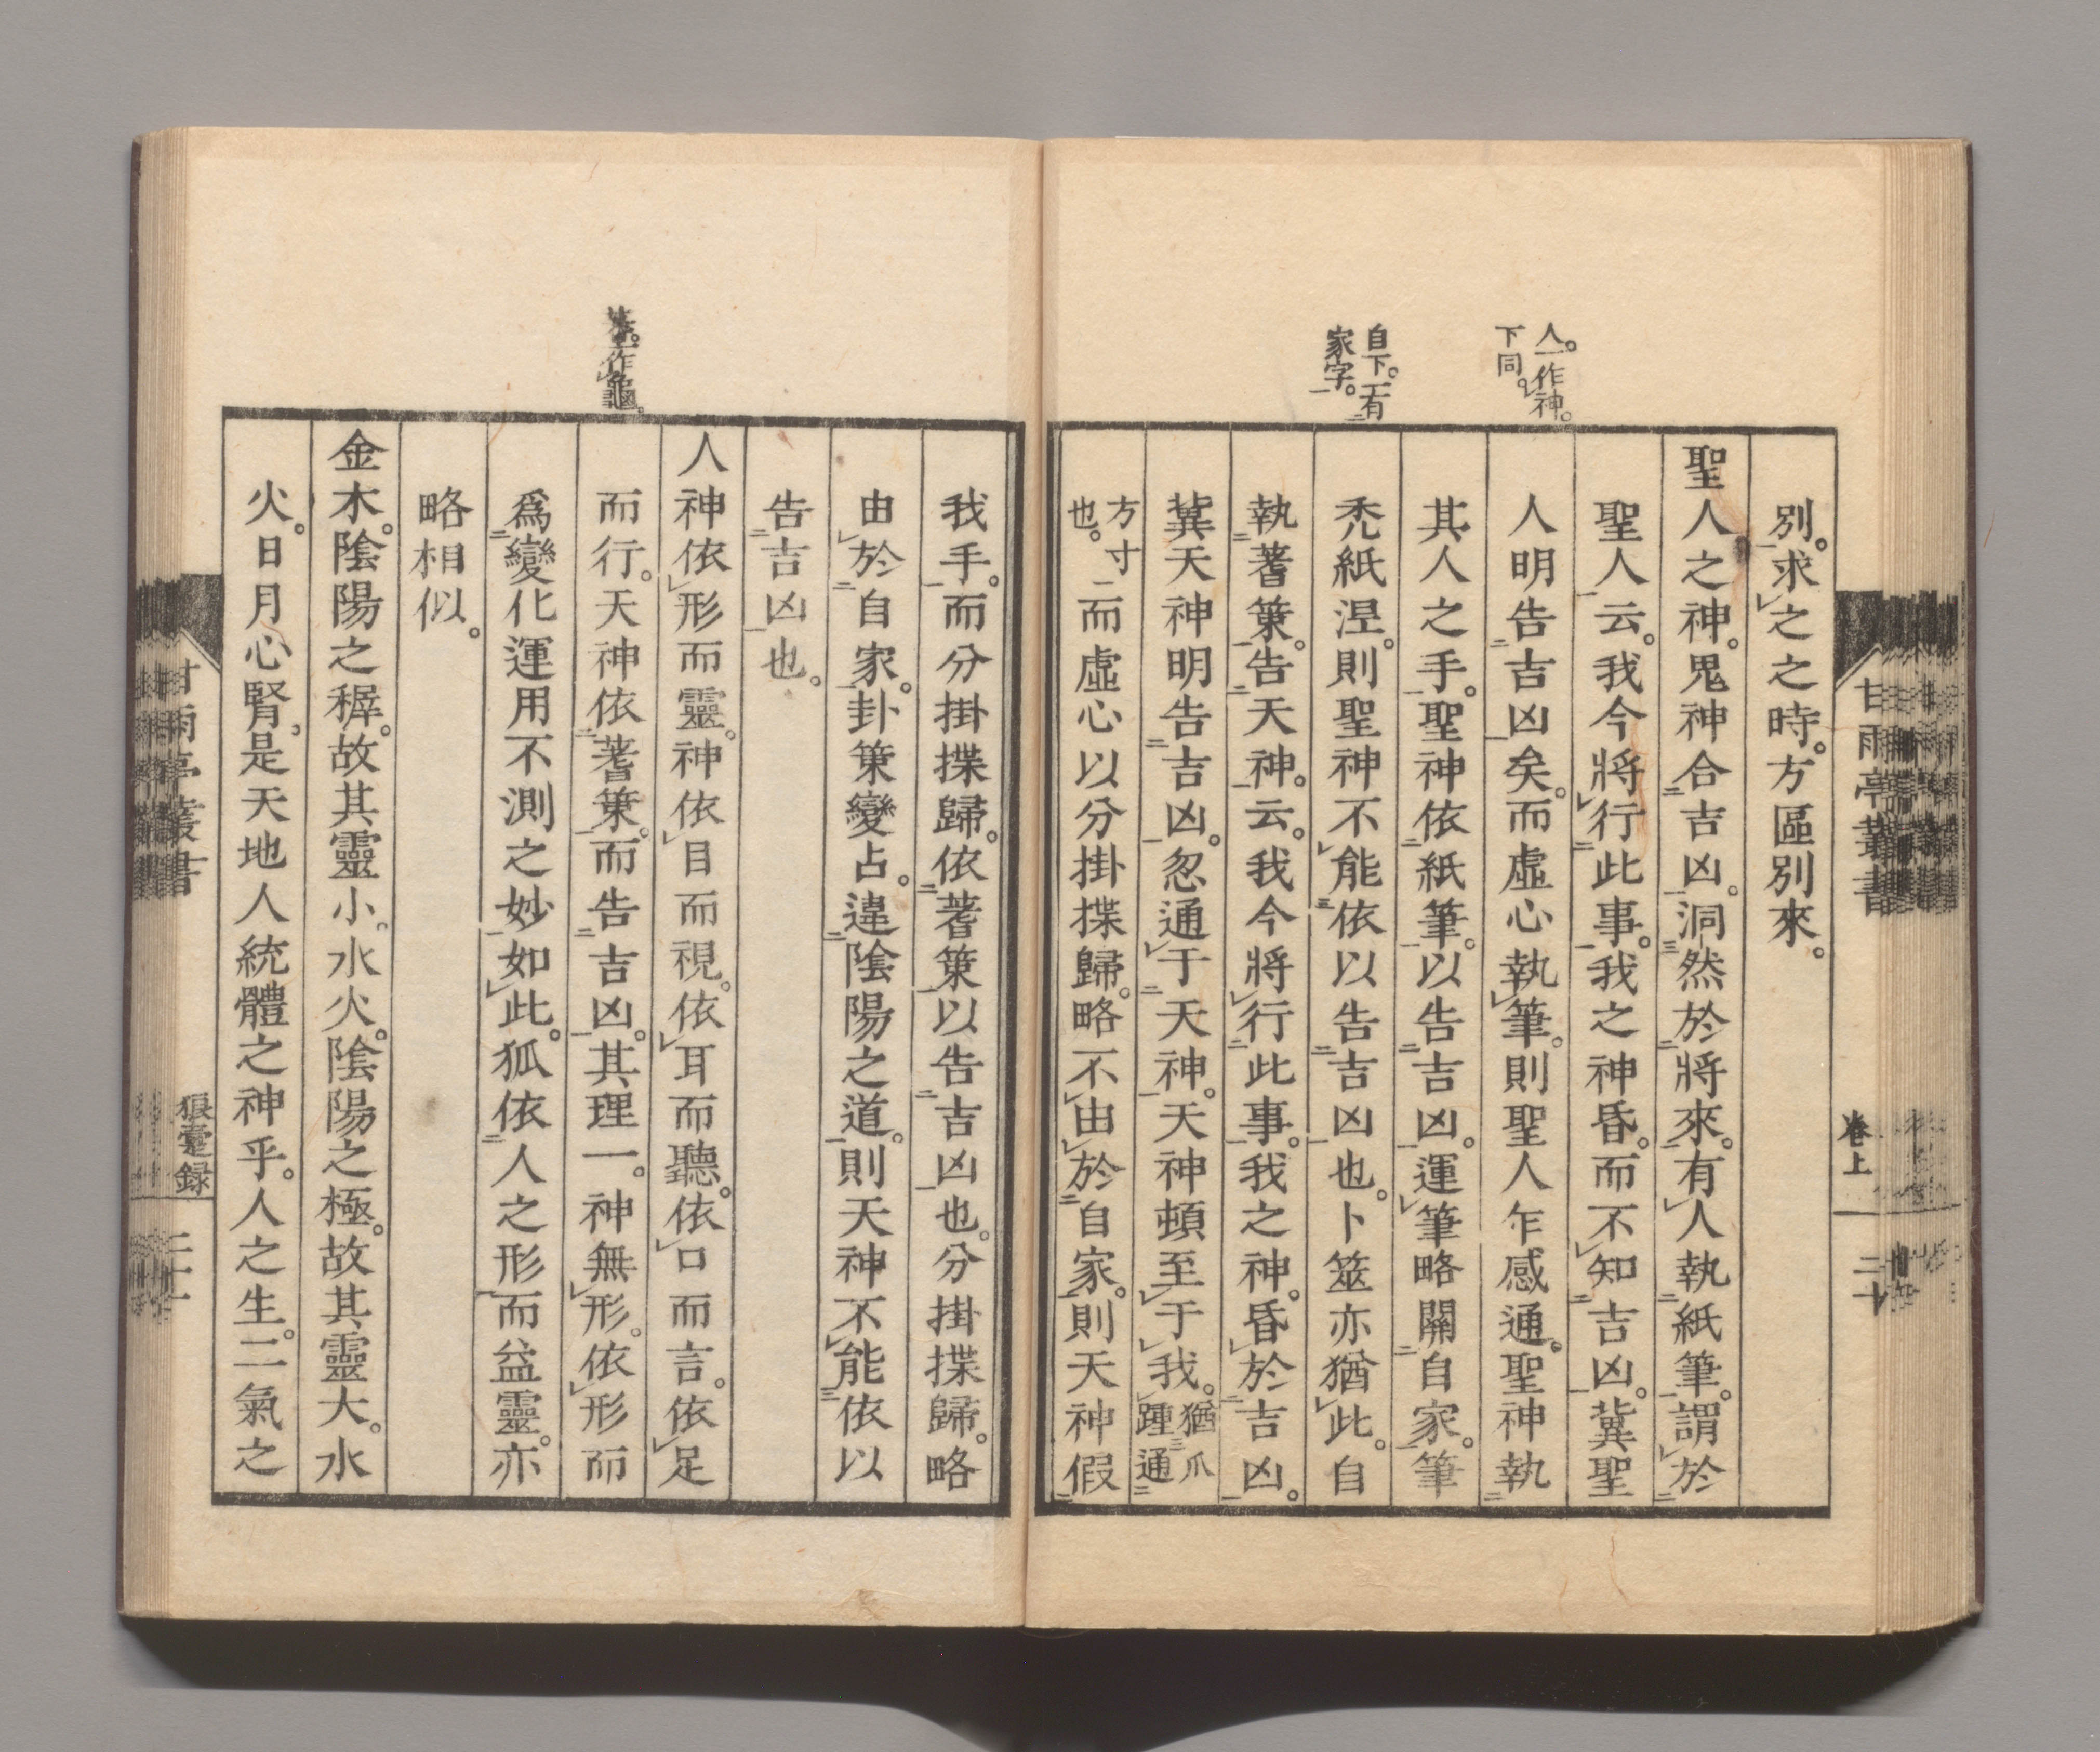 甘雨亭叢書
卷上
二十
人。一作神。
下同。
自下。一有
家字。
別。求之之時。方區別來。
聖人之神。鬼神合吉凶。洞然於將來。有人執紙筆。謂於
聖人云。我今將行此事。我之神昏。而不知吉凶。冀聖
人明告吉凶矣。而虛心執筆。則聖人乍感通。聖神執
其人之手。聖神依紙筆。以告吉凶。運筆略關自家。筆
禿紙涅。則聖神不能依以告吉凶也。卜筮亦猶此。自
執蓍筞。告天神。云。我今將行此事。我之神。昏於吉凶。
冀天神明告吉凶。忽通于天神。天神頓至于我。猶爪
踵通
方寸
也。
二而虛心以分掛揲歸。略不由於自家。則天神假
我手。而分掛揲歸。依蓍筞以告吉凶也。分掛揲歸。略
由於自家。卦筞變占。違陰陽之道。則天神不能依以
告吉凶也。
人神依形而靈。神依目而視。依耳而聽。依口而言。依足
而行。天神依蓍筞。而告吉凶。其理一。神無形。依形而
爲變化運用不測之妙如此。狐依人之形而益靈。亦
略相似。
金木。陰陽之穉。故其靈小。水火。陰陽之極。故其靈大。水
火。日月心腎。是天地人統體之神乎。人之生。二氣之
一作龜。
甘雨亭叢書
狼疐録
二十一